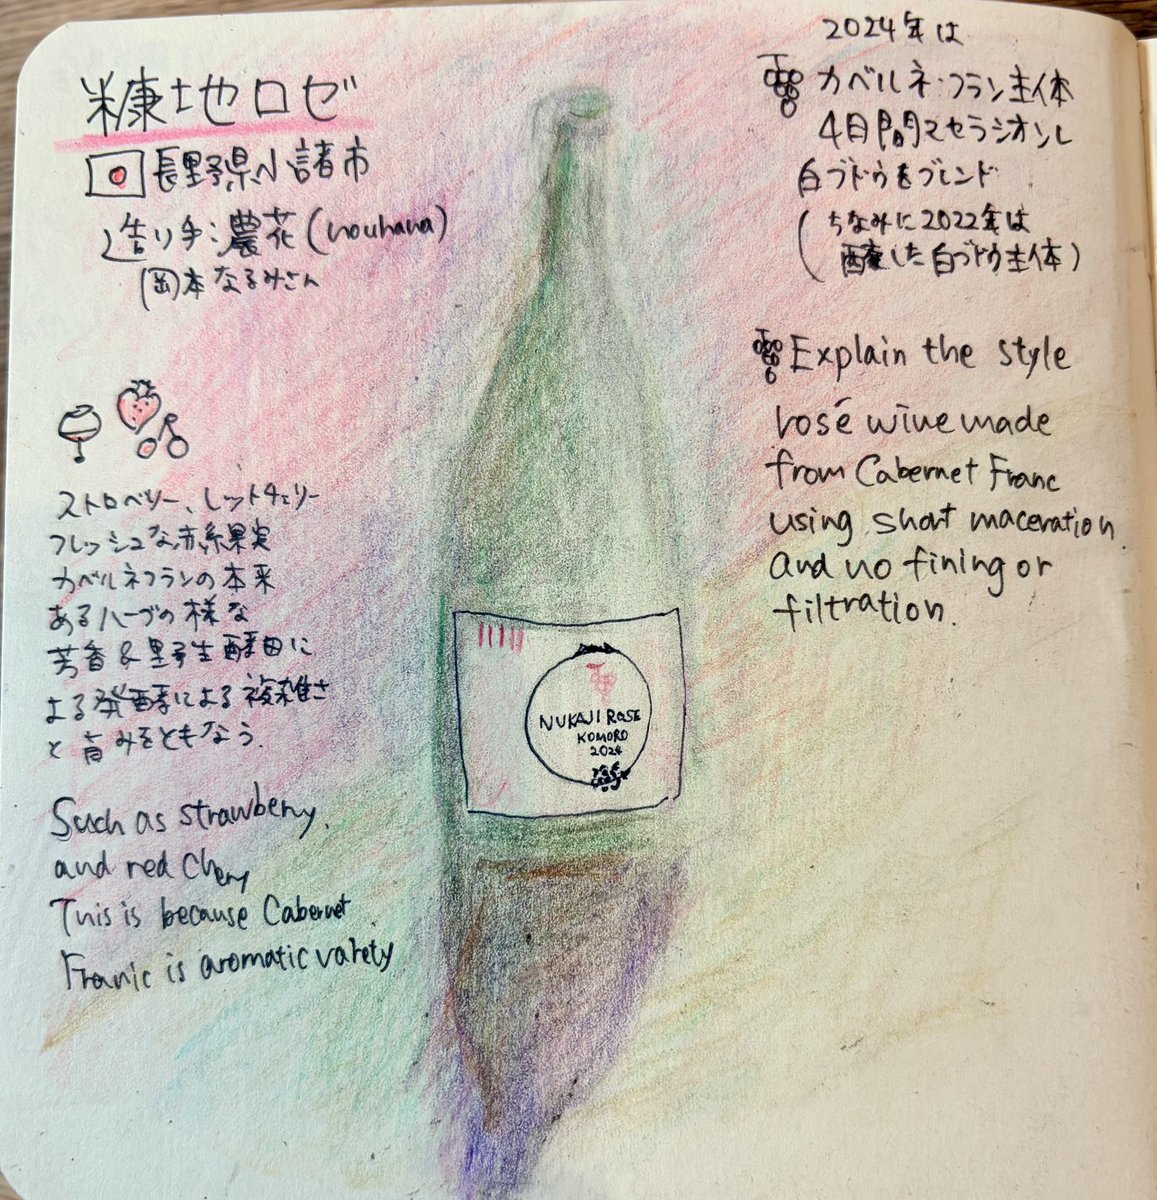 糠地ロゼ
長野県小諸市
造り手:農花(nouhana)
岡本なるみさん
ストロベリー、レッドチェリー
フレッシュな赤系果実
カベルネフランの本来
あるハーブの様な
芳香&野生酵母に
よる発酵による複雑さ
と旨みをともなう.
Such as strawberry,
and red Cherry
This is because Cabernet
Franc is aromatic variety
NUKAJI ROSE
KOMORO
2024
2024年は
カベルネ・フラン主体
4日間マセラシオンし
白ブドウをブレンド
(ちなみに2022年は
醸した白ブドウ主体)
Explain the style
rosé wine made
from Cabernet Franc
using short maceration.
and no fining or
filtration.